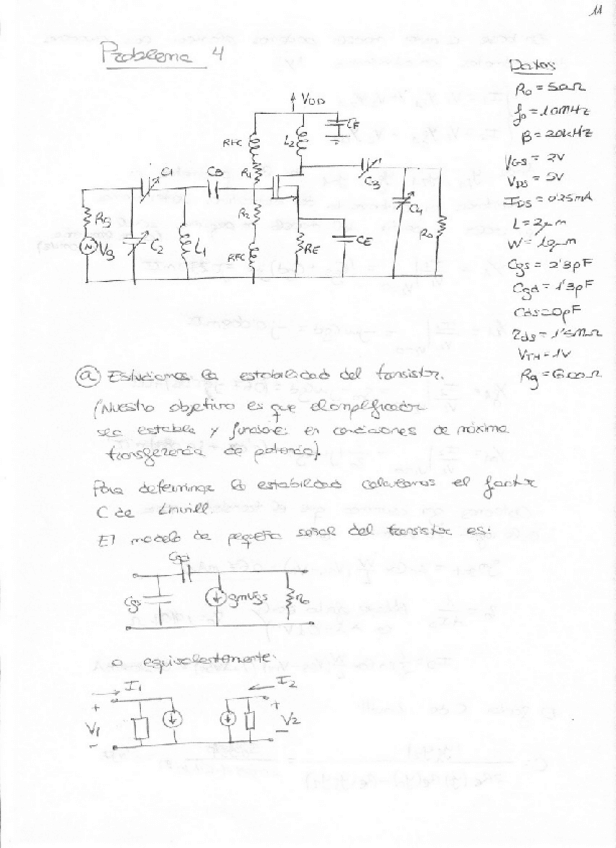 11
Problema 4
Datos
Ro = 50Ω
fo = 10MHz
B = 20kHz
VGS = 2V
VDS = 5V
IDS = 0'25mA
L = 2μm
W = 10μm
Cgs = 2'3pF
Cgd = 1'3pF
Cds = 0pF
rds = 1'5MΩ
VTH = 1V
Rg = 600Ω
VDD
CF
RFC
L2
R1
C1
CB
C3
C4
Rg
Vg
C2
L1
R2
RFC
RE
CE
Ro
a) Estudiamos la estabilidad del transistor.
(Nuestro objetivo es que el amplificador
sea estable y funcione en condiciones de máxima
transferencia de potencia).
Para determinar la estabilidad calculamos el factor
C de Linvill.
El modelo de pequeña señal del transistor es:
Cgd
Cgs
gmvgs
Ro
o equivalentemente:
I1
I2
+
+
V1
V2
-
-